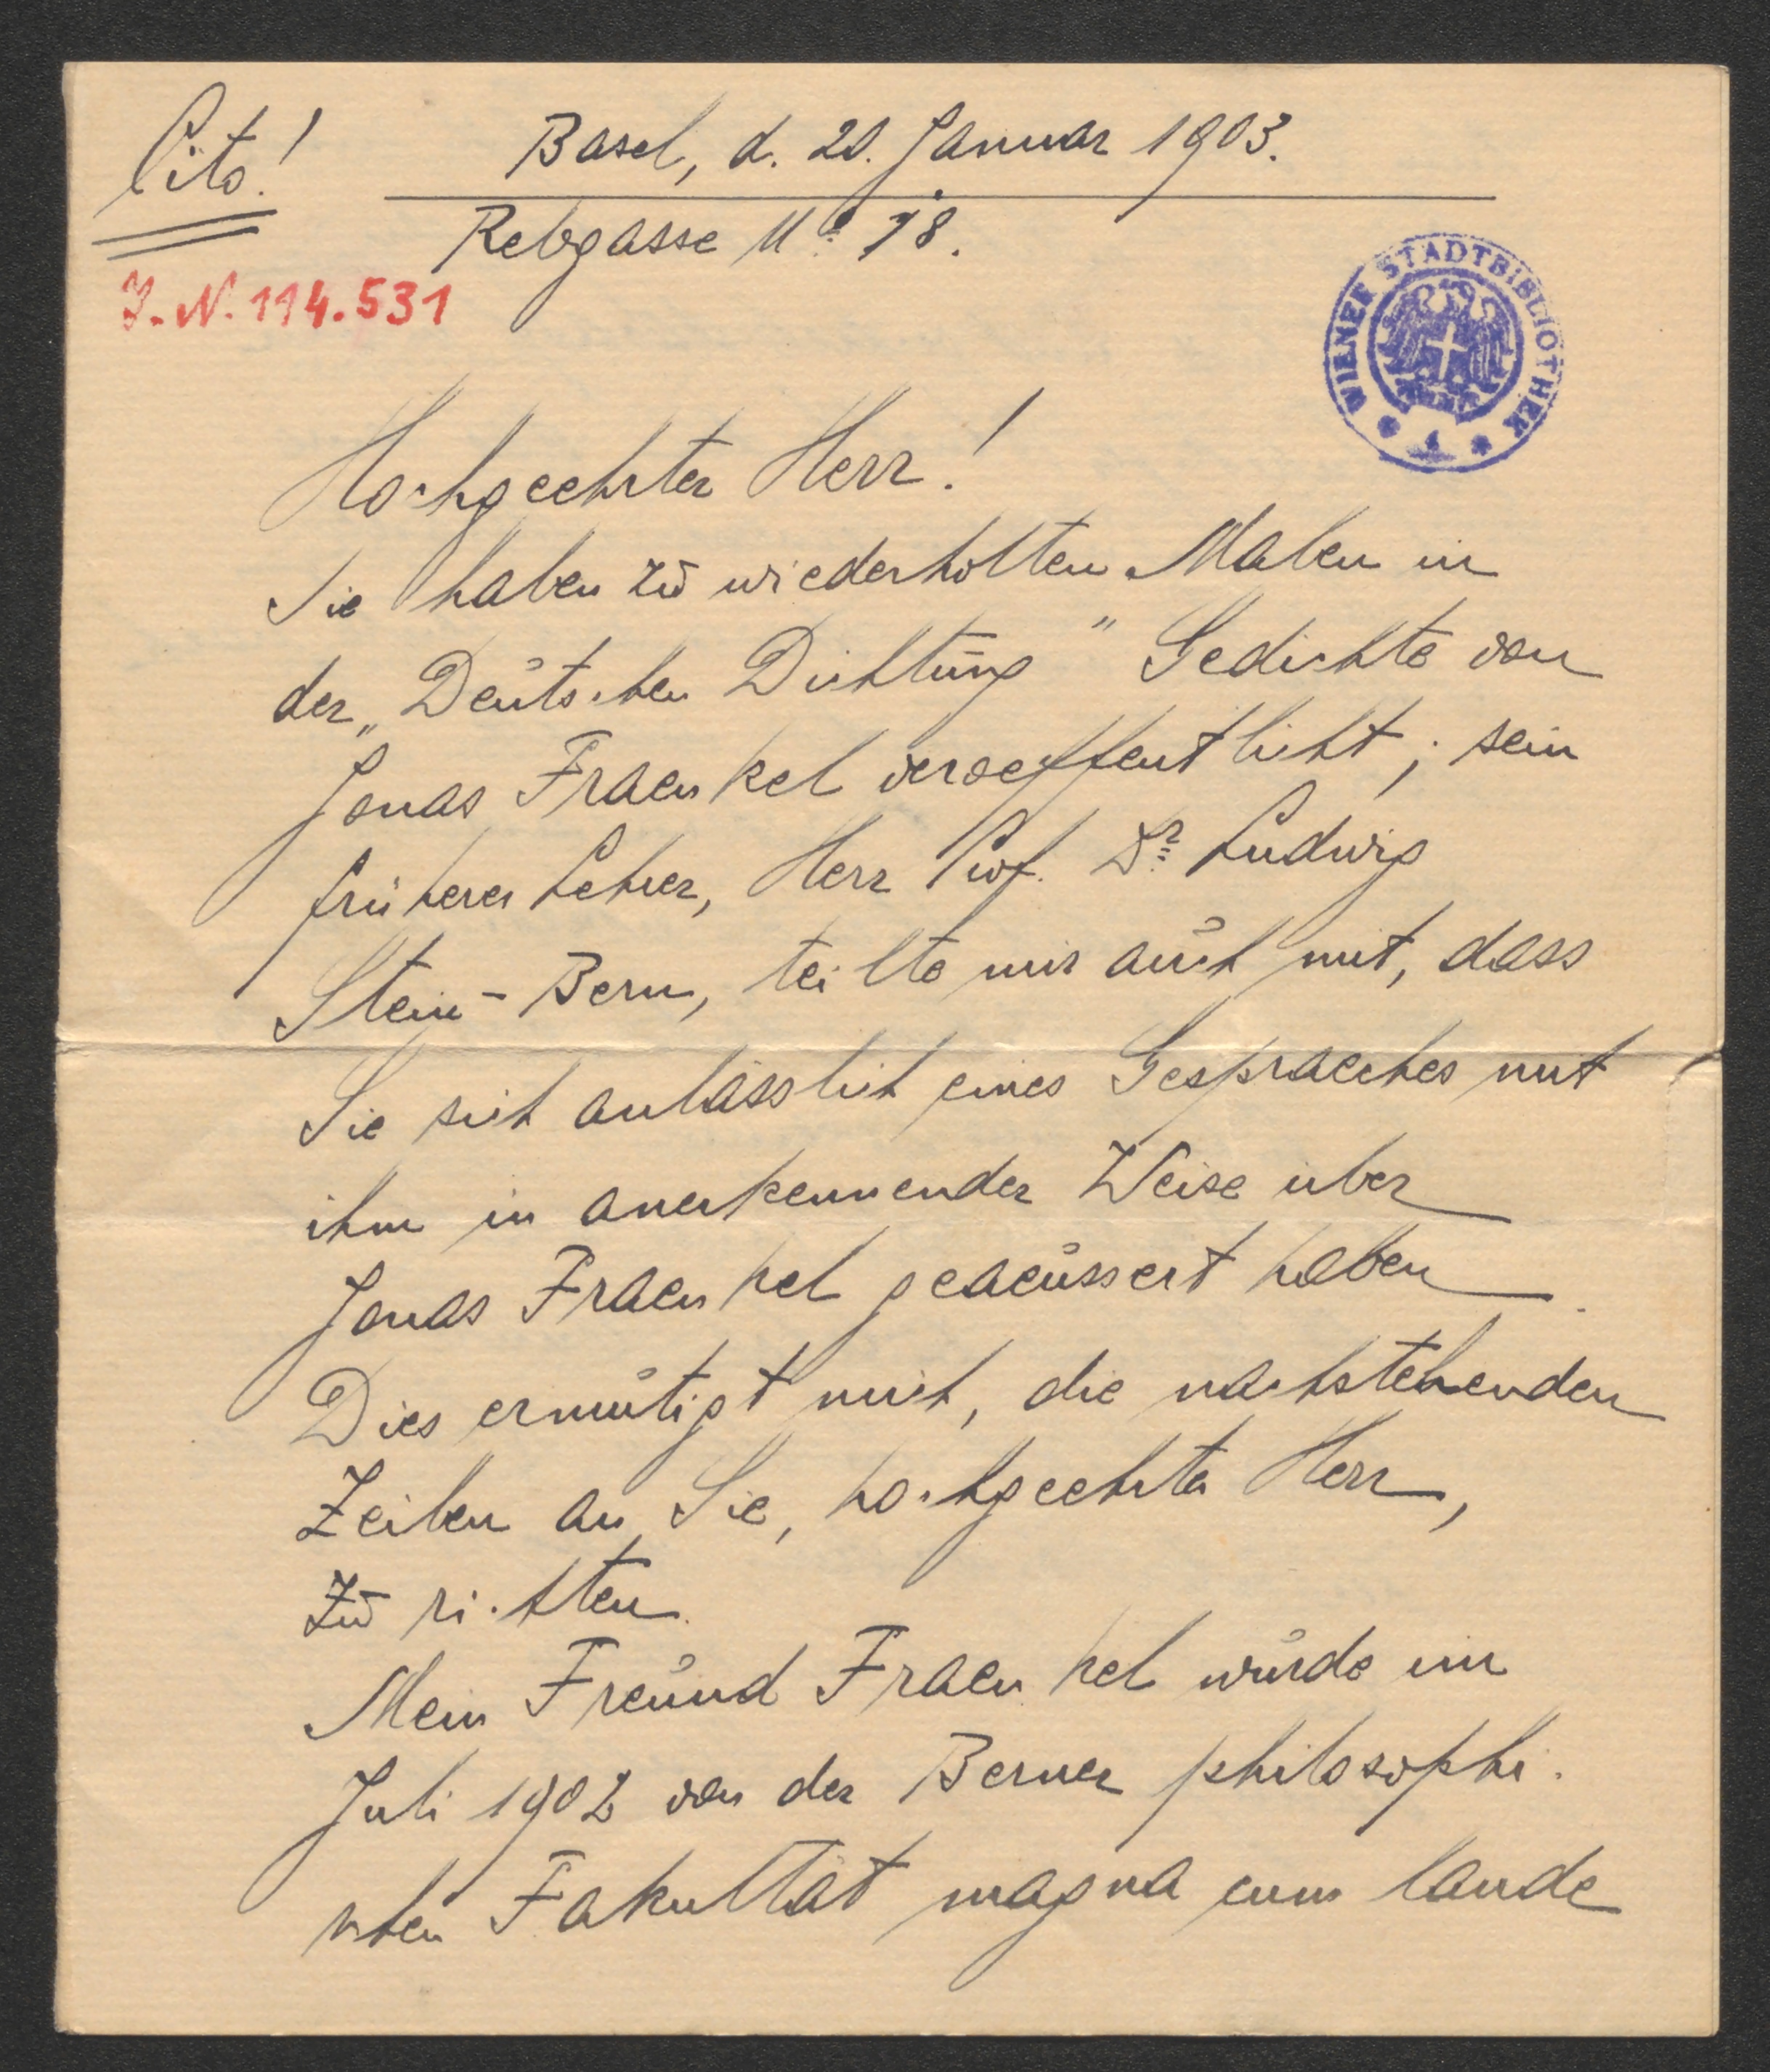 Cito!
Basel, d. 20. Januar 1903.
Rebgasse No. 18.
J.N. 114.531
WIENER STADTBIBLIOTHEK
Hochgeehrter Herr!
Sie haben zu wiederholten Malen in
der „Deutschen Dichtung" Gedichte von
Jonas Fraenkel veroeffentlicht; sein
früherer Lehrer, Herr Prof. Dr. Ludwig
Stein-Bern, teilte mir auch mit, dass
Sie sich anlässlich eines Gespraeches mit
ihm in anerkennender Weise über
Jonas Fraenkel geaeussert haben.
Dies ermutigt mich, die nachstehenden
Zeilen an Sie, hochgeehrter Herr,
zu richten.
Mein Freund Fraenkel wurde im
Juli 1902 von der Berner philosophi-
schen Fakultät magna cum laude